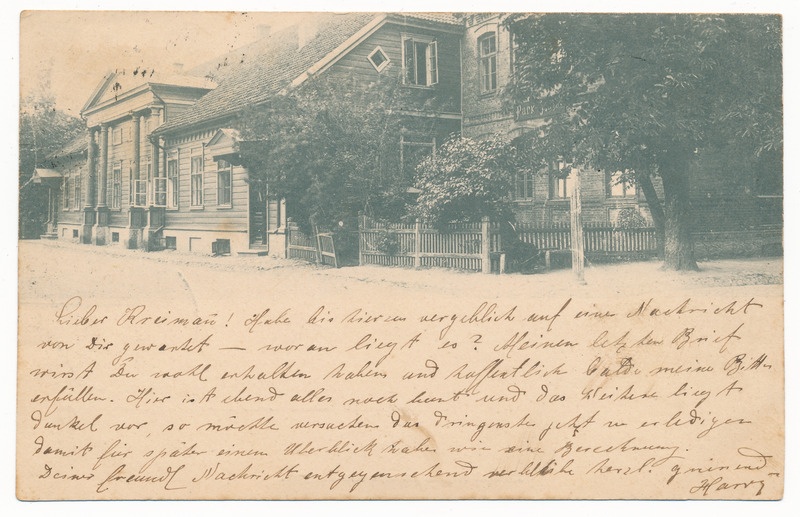 Park
Lieber Kreimann! Habe bis hierzu vergeblich auf eine Nachricht
von Dir gewartet — woran liegt es? Meinen letzten Brief
wirst Du wohl erhalten haben und hoffentlich bald meine Bitte
erfüllen. Hier ist ebend alles noch bunt und das Weitere liegt
dunkel vor, so möchte versuchen das Dringenste jetzt zu erledigen
damit für später einen Uberblick habe wie eine Berechnung.
Deiner freundl Nachricht entgegensehend verbleibe herzl. grüssend
Harry